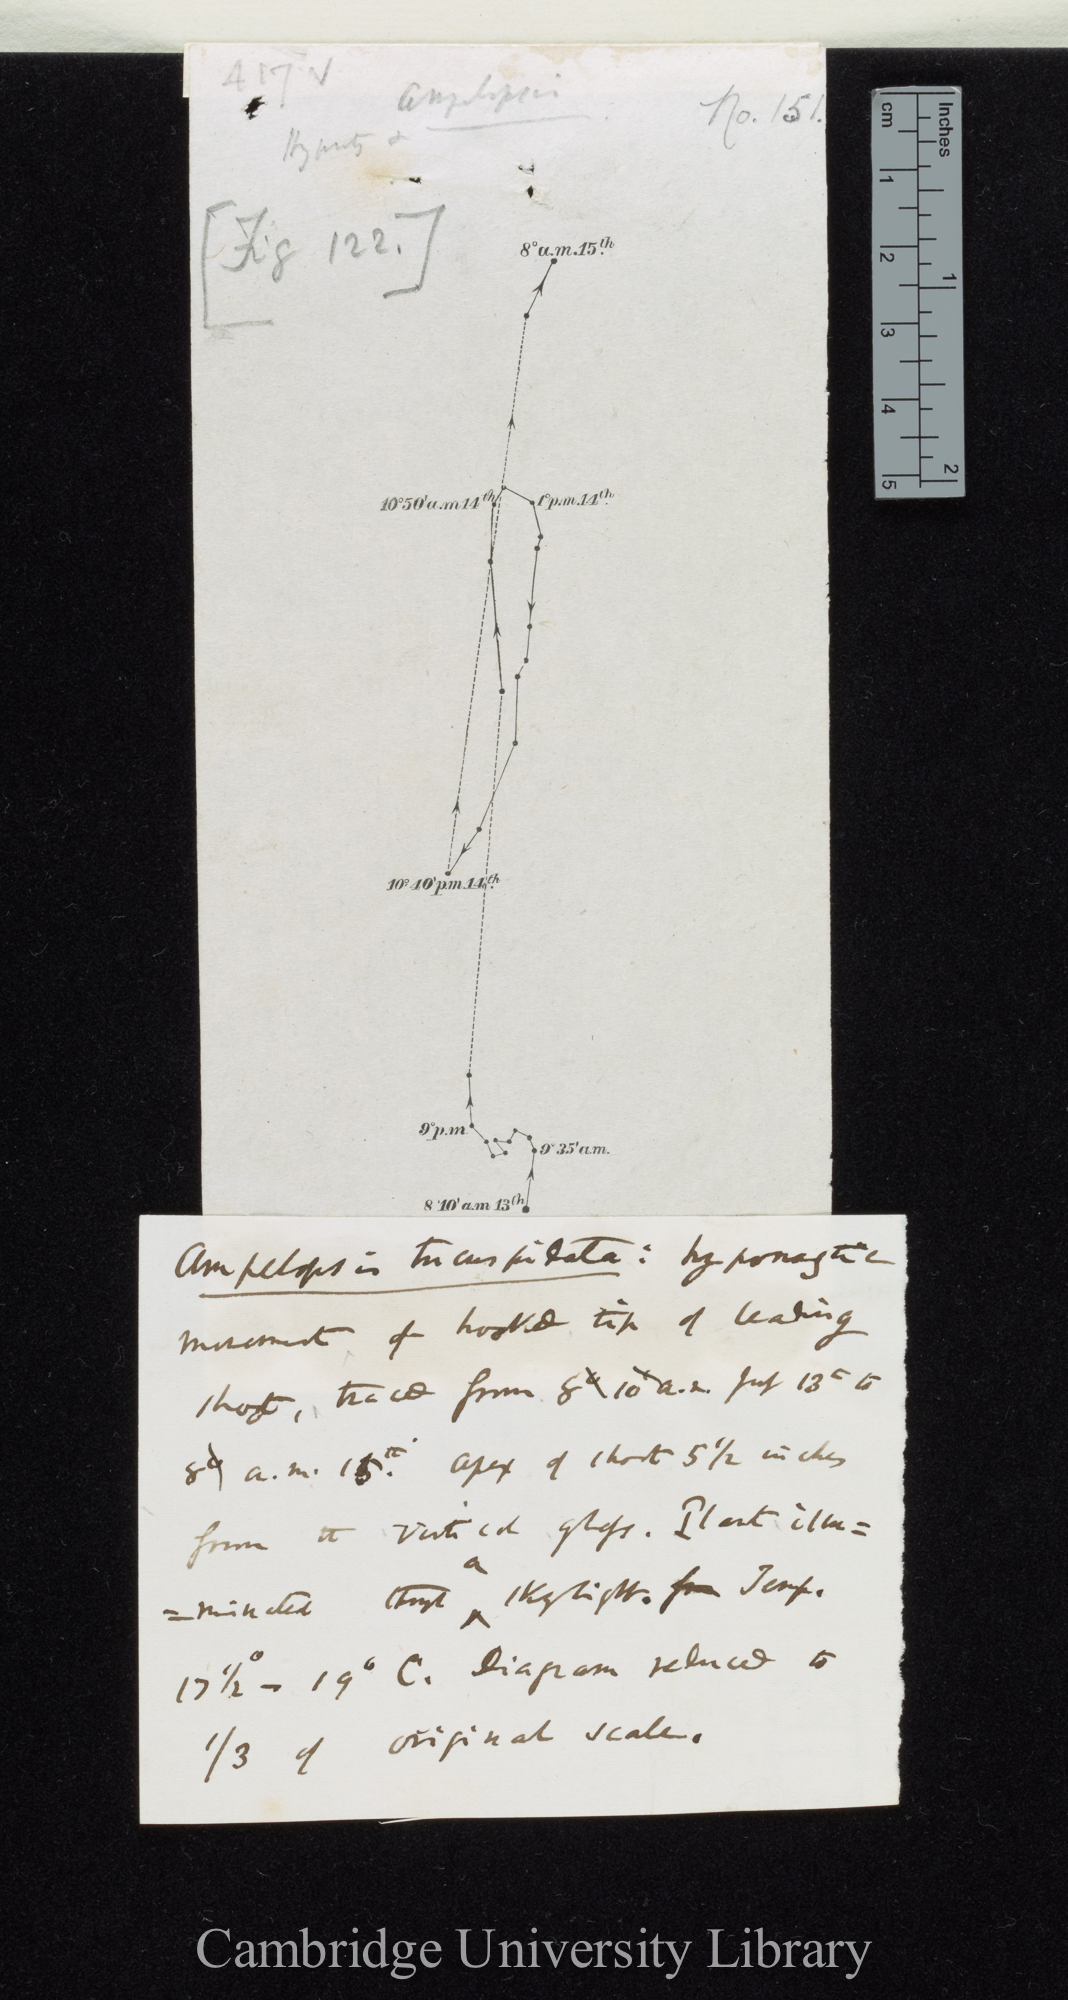 417v
Ampelopsis
No. 151.
[Fig 122.]
8° a.m. 15th
10° 50' a.m 14th
1° p.m. 14th
10° 40' p.m. 14th
9° p.m.
9° 35' a.m.
8° 10' a.m 13th
Ampelopsis tricuspidata: hyponastic
movement of hooked tip of leading
shoot, traced from 8° 10' a.m. July 13th to
8° a.m. 15th. apex of shoot 5 1/2 inches
from the vertical glass. Plant illu=
=minated through a skylight. Temp.
17 1/2° – 19° C. Diagram reduced to
1/3 of original scale.
cm
Inches
1
2
3
4
5
1
2
Cambridge University Library